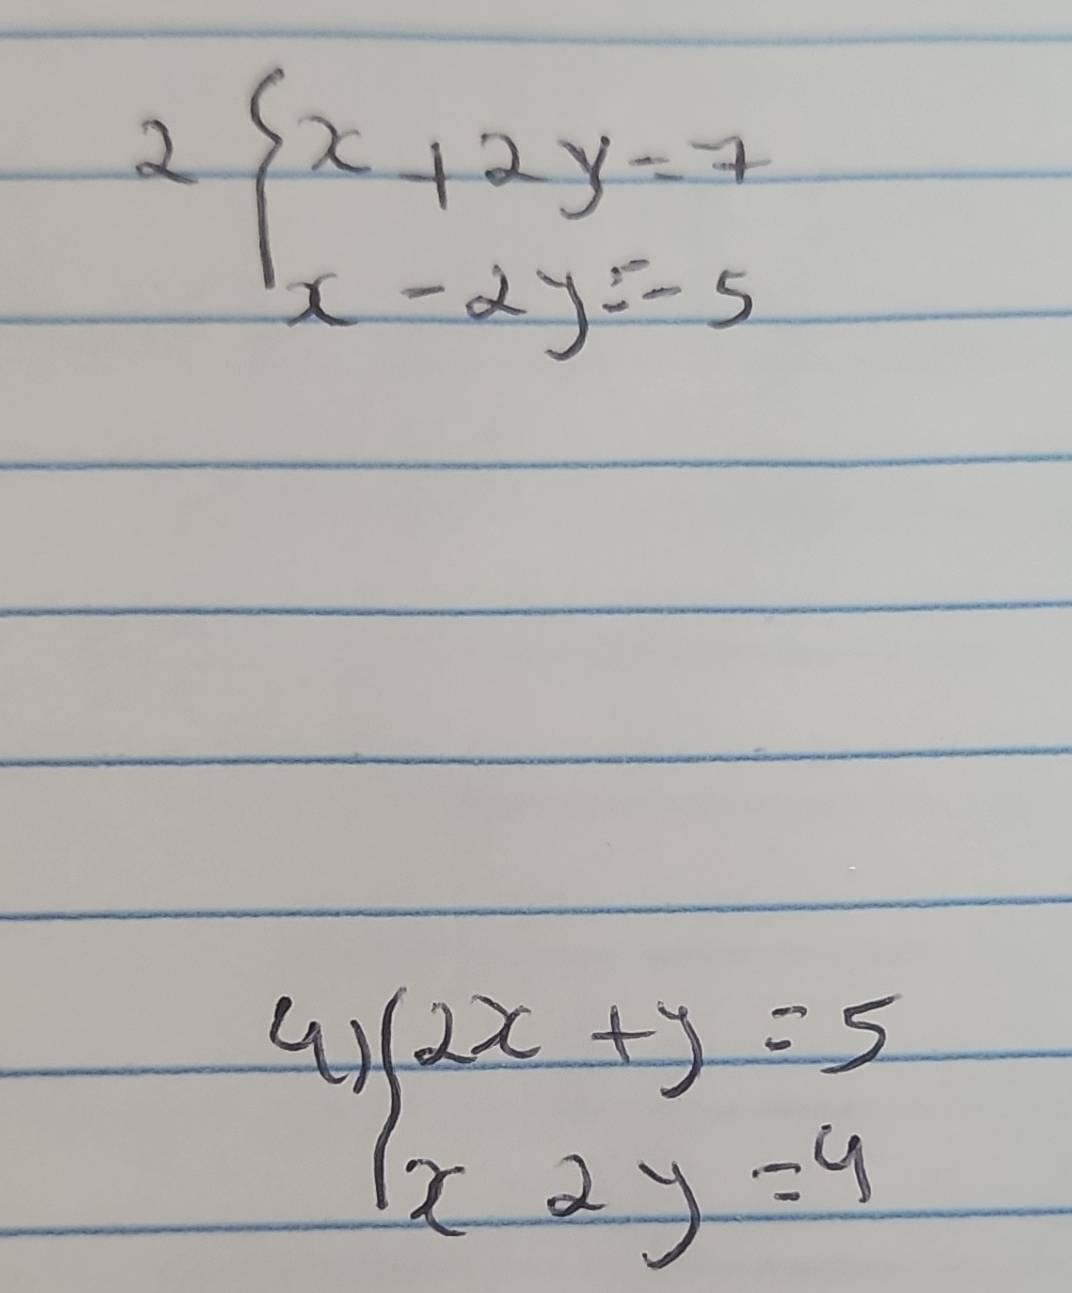 2 { x + 2y = 7
x - 2y = - 5
4) { 2x + y = 5
x 2y = 4